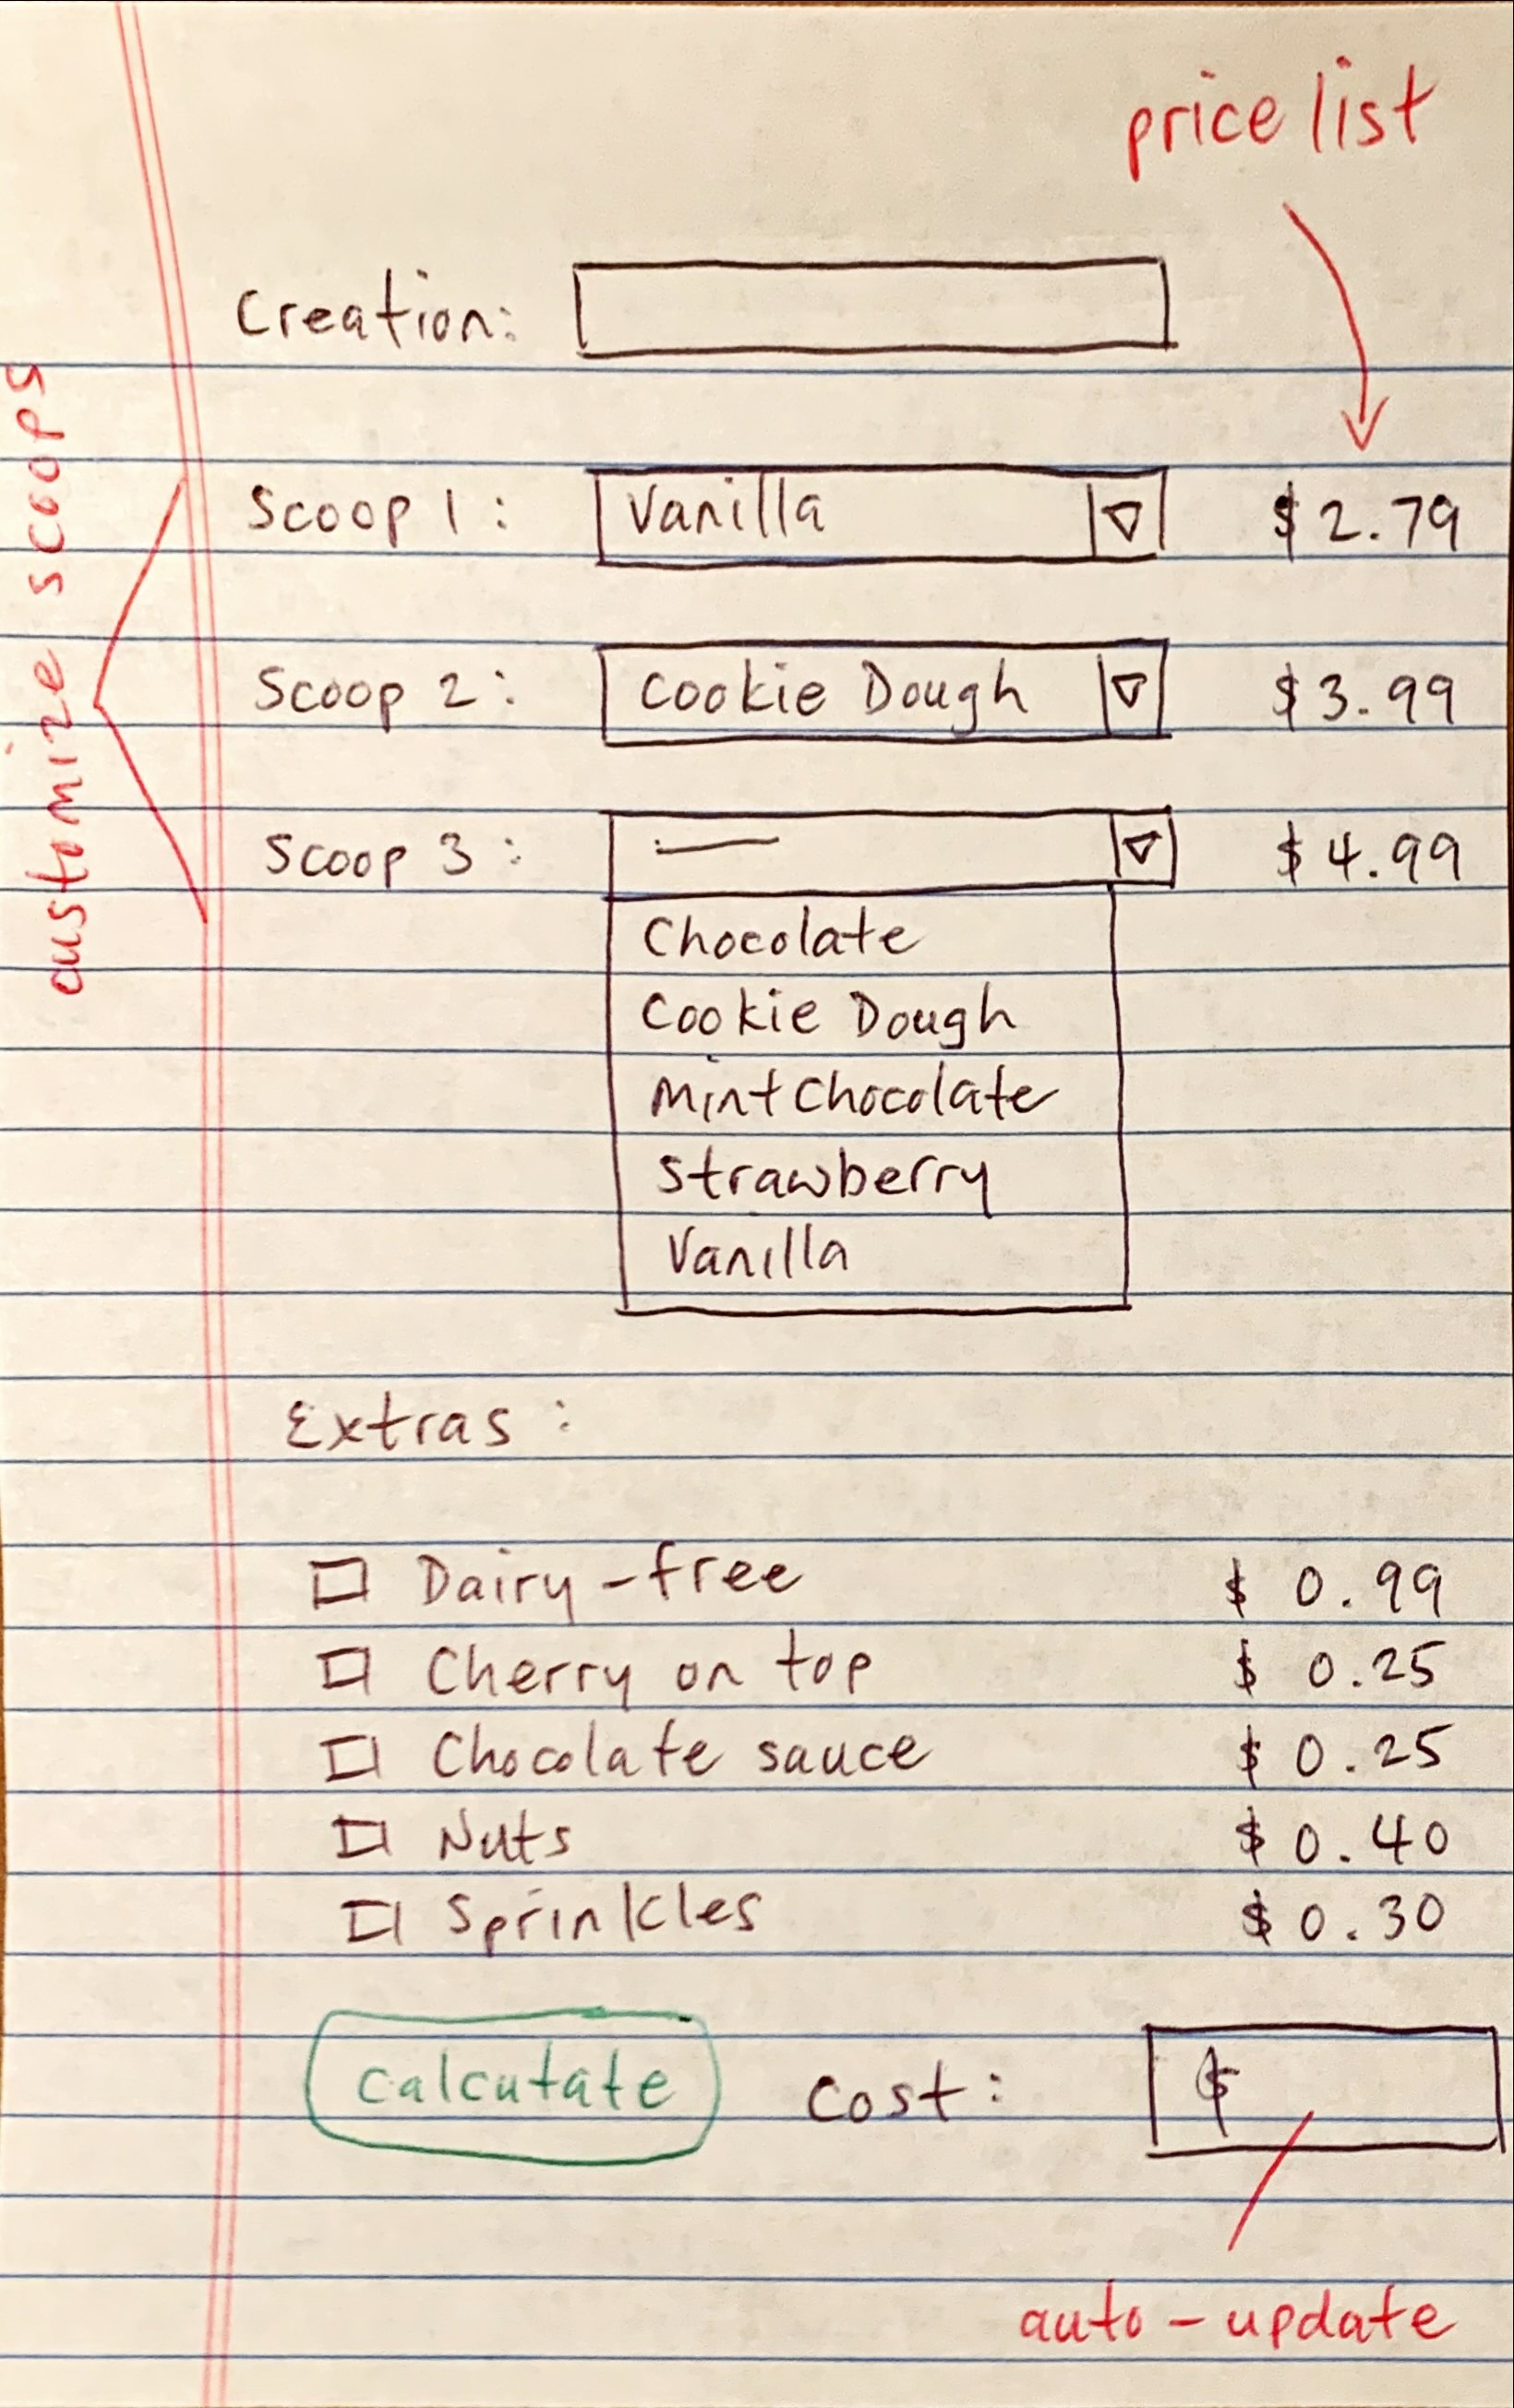 price list
Creation:
customize scoops
Scoop 1: Vanilla $2.79
Scoop 2: Cookie Dough $3.99
Scoop 3: — $4.99
Chocolate
Cookie Dough
Mint Chocolate
Strawberry
Vanilla
Extras:
Dairy-free $0.99
Cherry on top $0.25
Chocolate sauce $0.25
Nuts $0.40
Sprinkles $0.30
Calculate Cost: $
auto-update